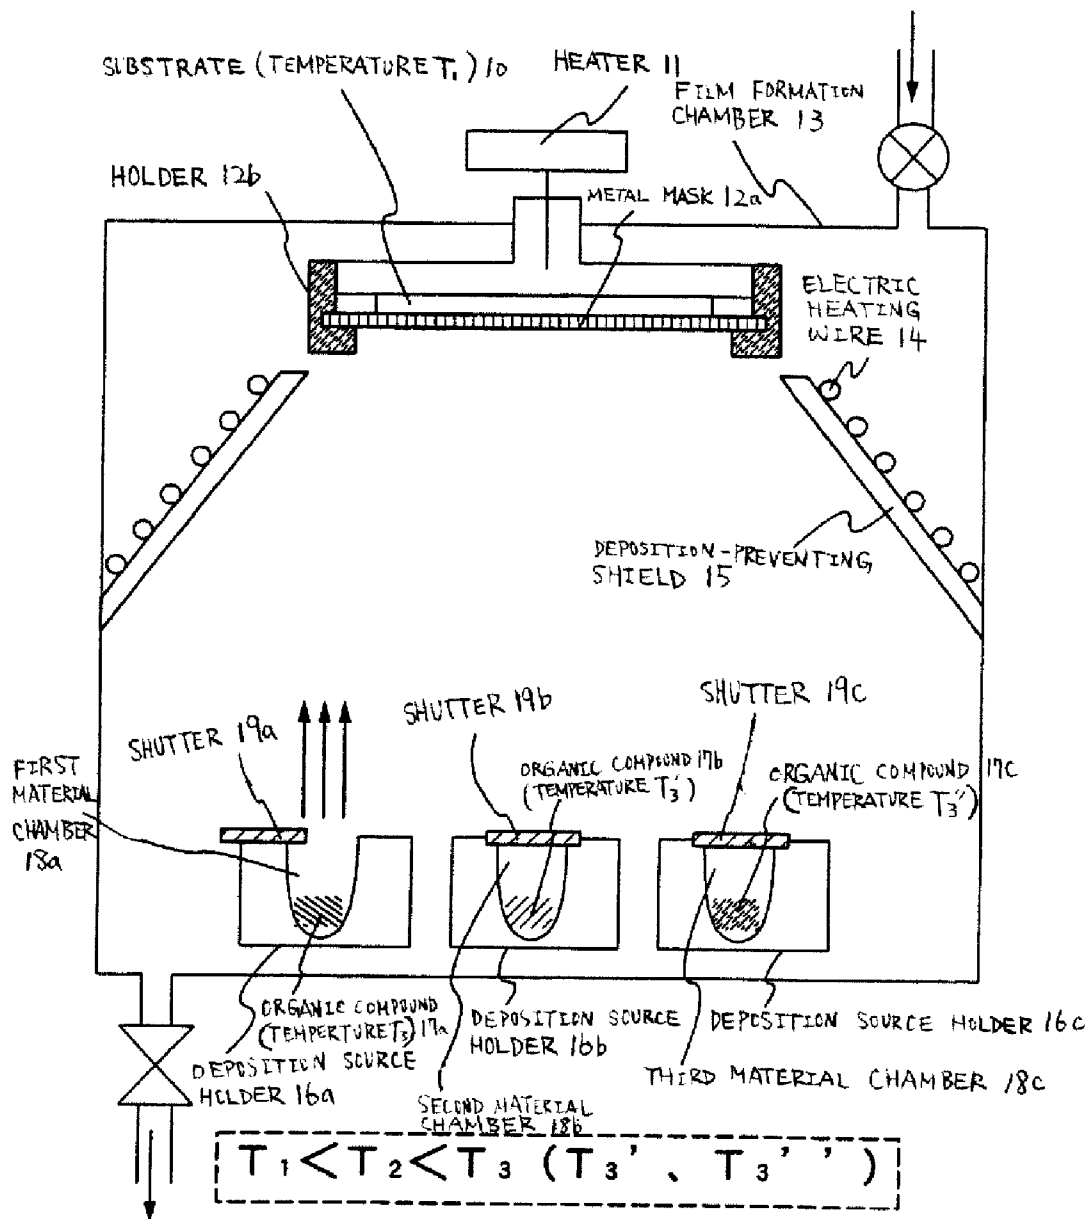 SUBSTRATE (TEMPERATURE T1) 10
HEATER 11
FILM FORMATION
CHAMBER 13
HOLDER 12b
METAL MASK 12a
ELECTRIC
HEATING
WIRE 14
DEPOSITION-PREVENTING
SHIELD 15
SHUTTER 19a
SHUTTER 19b
SHUTTER 19c
FIRST
MATERIAL
CHAMBER
18a
ORGANIC COMPOUND 17b
(TEMPERATURE T3')
ORGANIC COMPOUND 17c
(TEMPERATURE T3'')
ORGANIC COMPOUND
(TEMPERTURE T3) 17a
DEPOSITION SOURCE
HOLDER 16a
DEPOSITION SOURCE
HOLDER 16b
DEPOSITION SOURCE HOLDER 16c
SECOND MATERIAL
CHAMBER 18b
THIRD MATERIAL CHAMBER 18c
T1<T2<T3 (T3'、T3'')